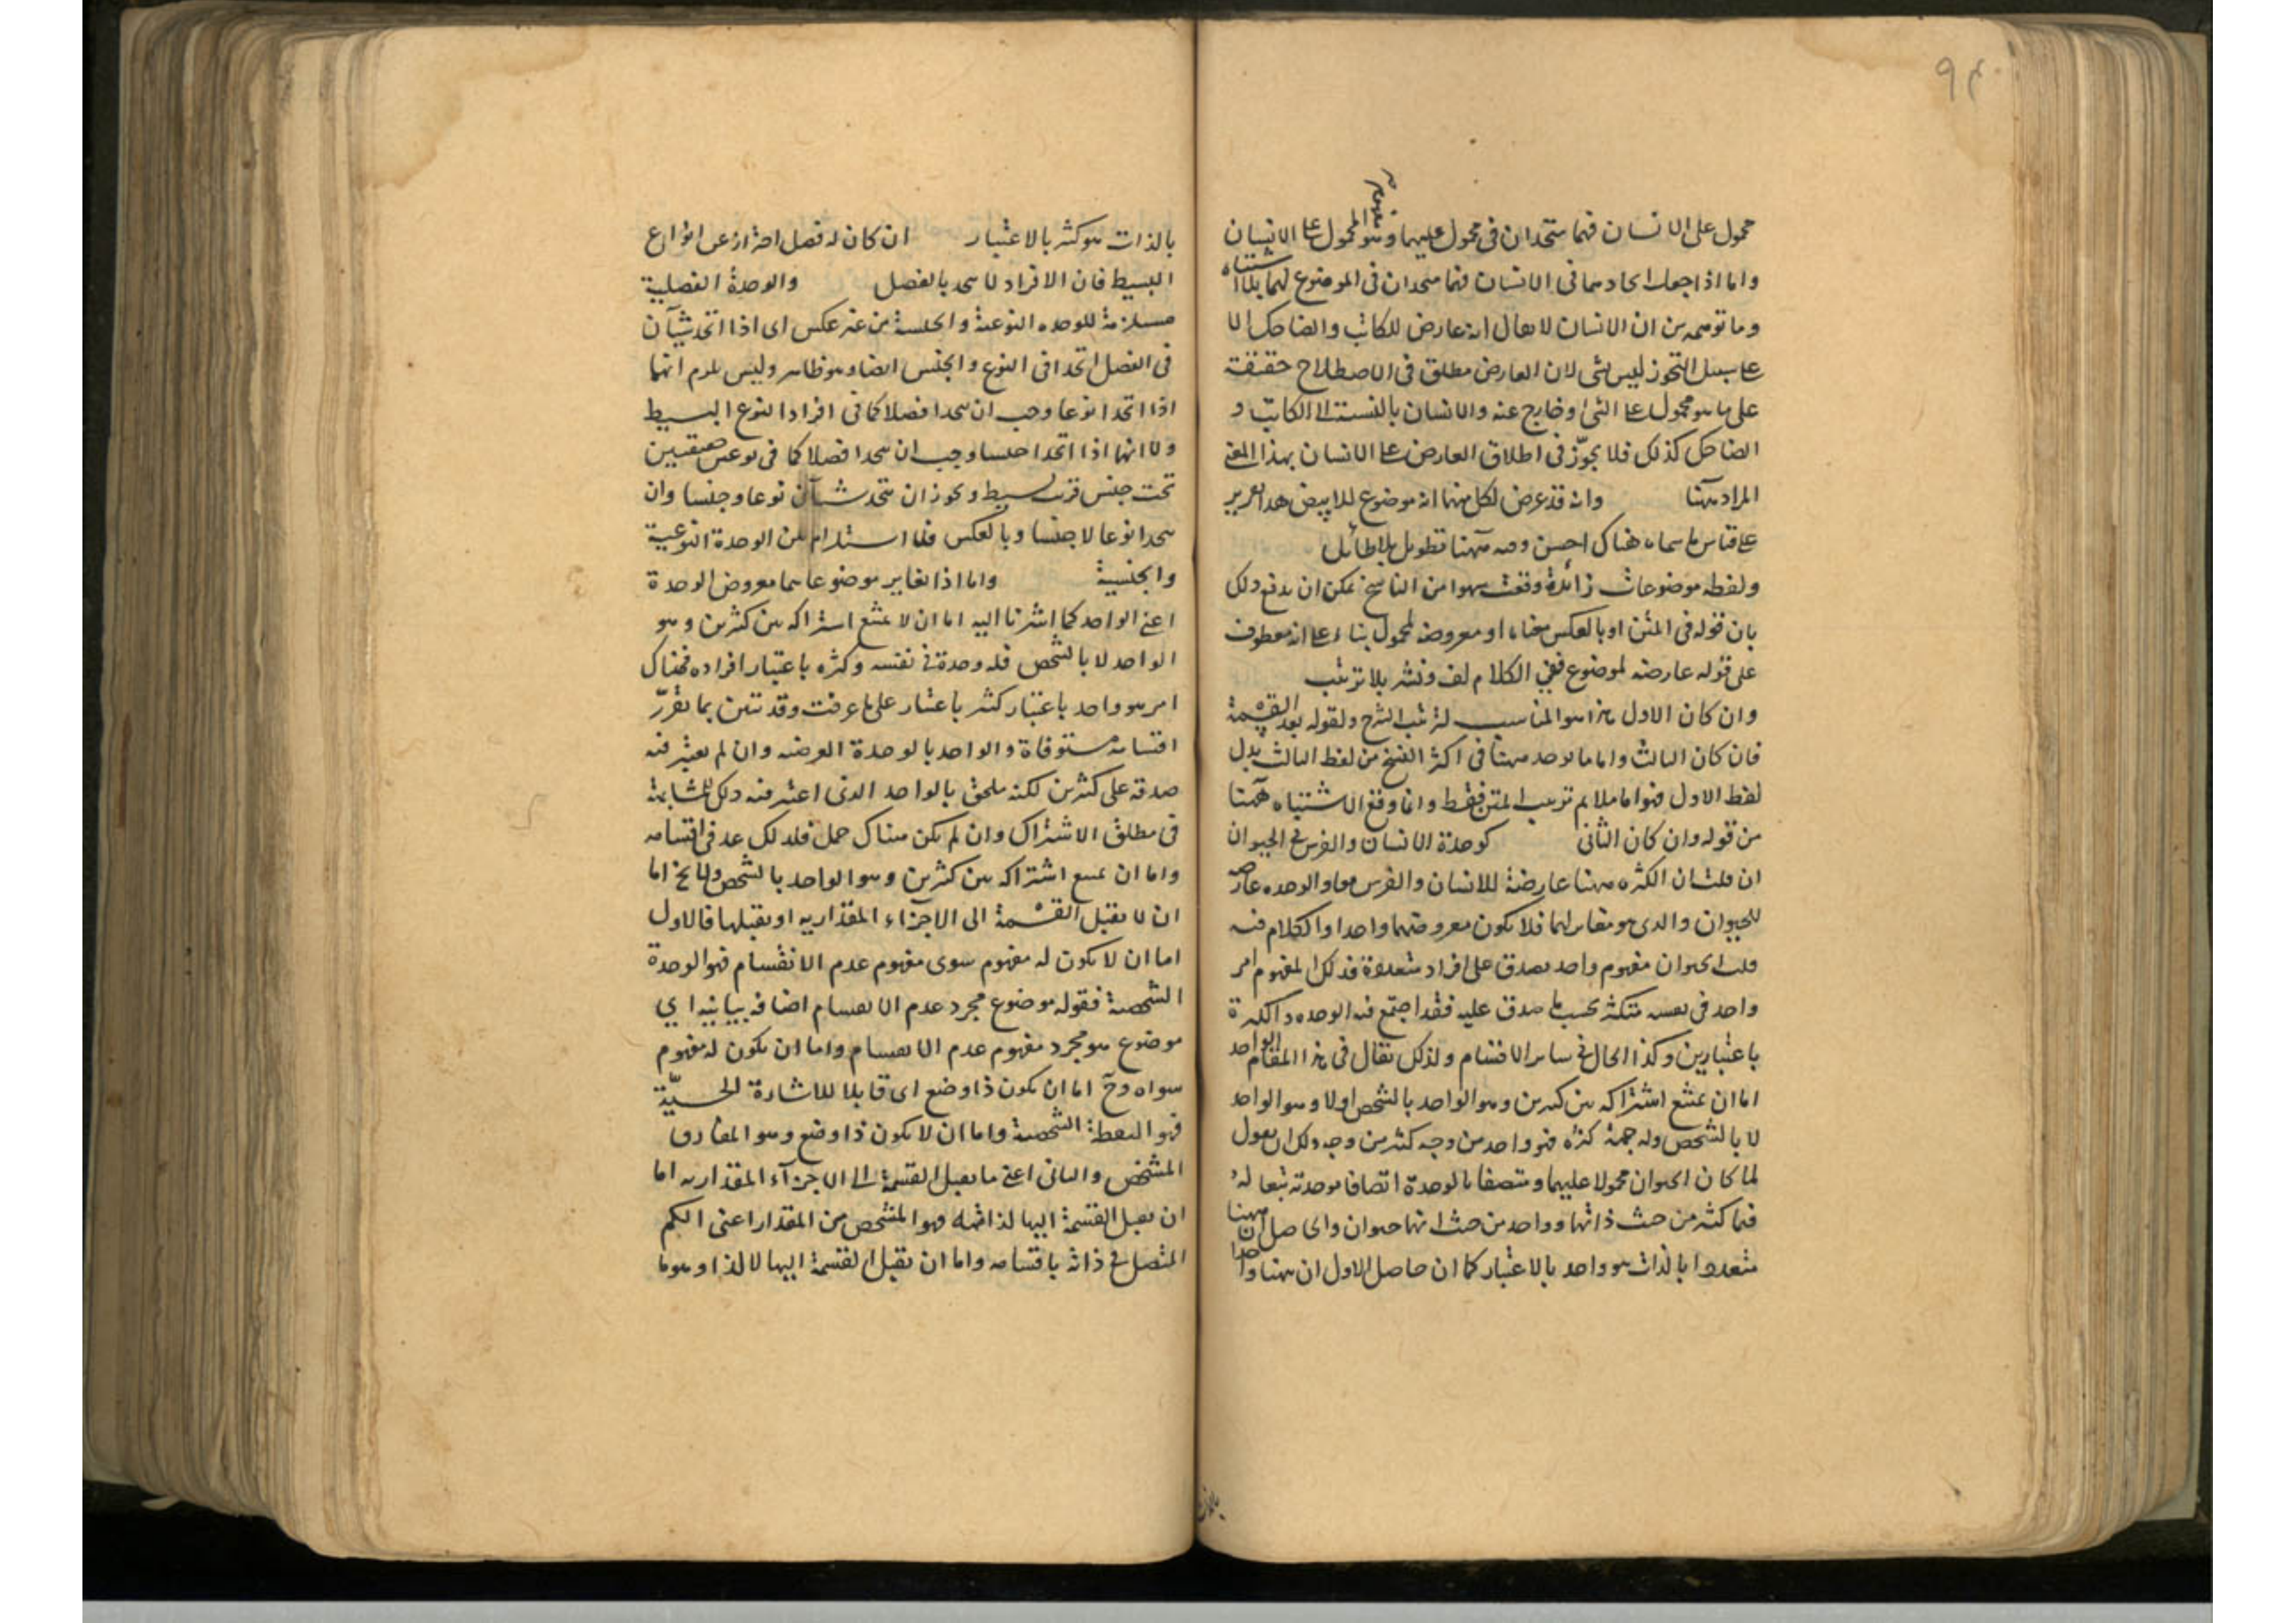 ٩٤
محمول على الانسان فهما متحدان فى محمول عليهما وهو المحمول على الانسان
واما اذا جعل اتحادهما فى الانسان فهما متحدان فى الموضوع لهما بلا اشتباه
وما توهمه من ان الانسان لا يقال انه عارض للكاتب والضاحك الا
على سبيل التجوز ليس بشئ لان العارض مطلق فى الاصطلاح حقيقة
على ما هو محمول على الشئ وخارج عنه والانسان بالنسبة الى الكاتب و
الضاحك كذلك فلا تجوّز فى اطلاق العارض على الانسان بهذا المعنى
المراد ههنا وانه قد عرض لكل منهما انه موضوع للابيض هذا
على قياس ما سماه هناك احسن وفيه ههنا تطويل بلا طائل
ولفظه موضوعات زائدة وقعت سهوا من الناسخ يمكن ان يدفع ذلك
بان قوله فى المتن او بالعكس معناه او معروضة لمحمول بناء على انه معطوف
على قوله عارضه لموضوع ففى الكلام لف ونشر بلا ترتيب
وان كان الاول هذا هو المناسب لترتيب الشرح ولقوله بعد القسمة
فان كان الثالث واما ما يوجد ههنا فى اكثر النسخ من لفظ الثالث بدل
لفظ الاول فهو اما ملايم ترتيب المتن فقط وانما وقع الاشتباه ههنا
من قوله وان كان الثانى كوحدة الانسان والفرس فى الحيوان
ان قلت ان الكثرة ههنا عارضة للانسان والفرس معا والوحده عارضة
للحيوان والذى هو مغاير لهما فلا يكون معروضهما واحدا والكلام فيه
قلت الحيوان مفهوم واحد يصدق على افراد متعددة فذلك المفهوم امر
واحد فى نفسه متكثر بحسب ما صدق عليه فقد اجتمع فيه الوحدة والكثرة
باعتبارين وكذا الحال فى سائر الاقسام ولذلك يقال فى هذا المقام الواحد
اما ان يمتنع اشتراكه بين كثيرين وهو الواحد بالشخص اولا وهو الواحد
لا بالشخص وله جهة كثرة فهو واحد من وجه كثير من وجه ولك ان تقول
لما كان الحيوان محمولا عليهما ومتصفا بالوحدة اتصفا بوحدته تبعا له
فهما كثير من حيث ذاتهما وواحد من حيث انهما حيوان والحاصل ان ههنا
متعددا بالذات هو واحد بالاعتبار كما ان حاصل الاول ان ههنا واحدا
بالذات
بالذات هو كثير بالاعتبار ان كان له فصل احتراز عن انواع
البسيط فان الافراد لا تتحد بالفصل والوحدة الفصلية
مستلزمة للوحدة النوعية والجنسية من غير عكس اى اذا اتحد شيآن
فى الفصل اتحدا فى النوع والجنس ايضا وهو ظاهر وليس يلزم انهما
اذا اتحدا نوعا وجب ان يتحدا فصلا كما فى افراد النوع البسيط
ولا انهما اذا اتحدا جنسا وجب ان يتحدا فصلا كما فى نوعين حقيقيين
تحت جنس قريب بسيط ويجوز ان يتحد شيآن نوعا وجنسا وان
يتحدا نوعا لا جنسا وبالعكس فلا استلزام بين الوحدة النوعية
والجنسية واما اذا تغاير موضوعاهما معروض الوحدة
اعنى الواحد كما اشرنا اليه اما ان لا يمتنع اشتراكه بين كثيرين وهو
الواحد لا بالشخص فله وحدة فى نفسه وكثرة باعتبار افراده فهناك
امر هو واحد باعتبار كثير باعتبار على ما عرفت وقد تبين بما تقرّر
اقسامه مستوفاة والواحد بالوحدة العرضية وان لم يعتبر فيه
صدقه على كثيرين لكنه ملحق بالواحد الذى اعتبر فيه ذلك للمشابهة
فى مطلق الاشتراك وان لم يكن هناك حمل فلذلك عد فى اقسامه
واما ان يمتنع اشتراكه بين كثيرين وهو الواحد بالشخص ولا يخ اما
ان لا يقبل القسمة الى الاجزاء المقدارية او يقبلها فالاول
اما ان لا يكون له مفهوم سوى مفهوم عدم الانقسام فهو الوحدة
الشخصية فقوله موضوع مجرد عدم الانقسام اضافه بيانيه اى
موضوع هو مجرد مفهوم عدم الانقسام واما ان يكون له مفهوم
سواه وح اما ان يكون ذا وضع اى قابلا للاشارة الحسيّة
فهو النقطة الشخصية واما ان لا يكون ذا وضع وهو المفارق
المشخص والثانى اعنى ما يقبل القسمة الى الاجزآء المقدارية اما
ان يقبل القسمة اليها لذاته فهو المشخص من المقدار اعنى الكم
المتصل فى ذاته باقسامه واما ان يقبل القسمة اليها لا لذا وهو ما